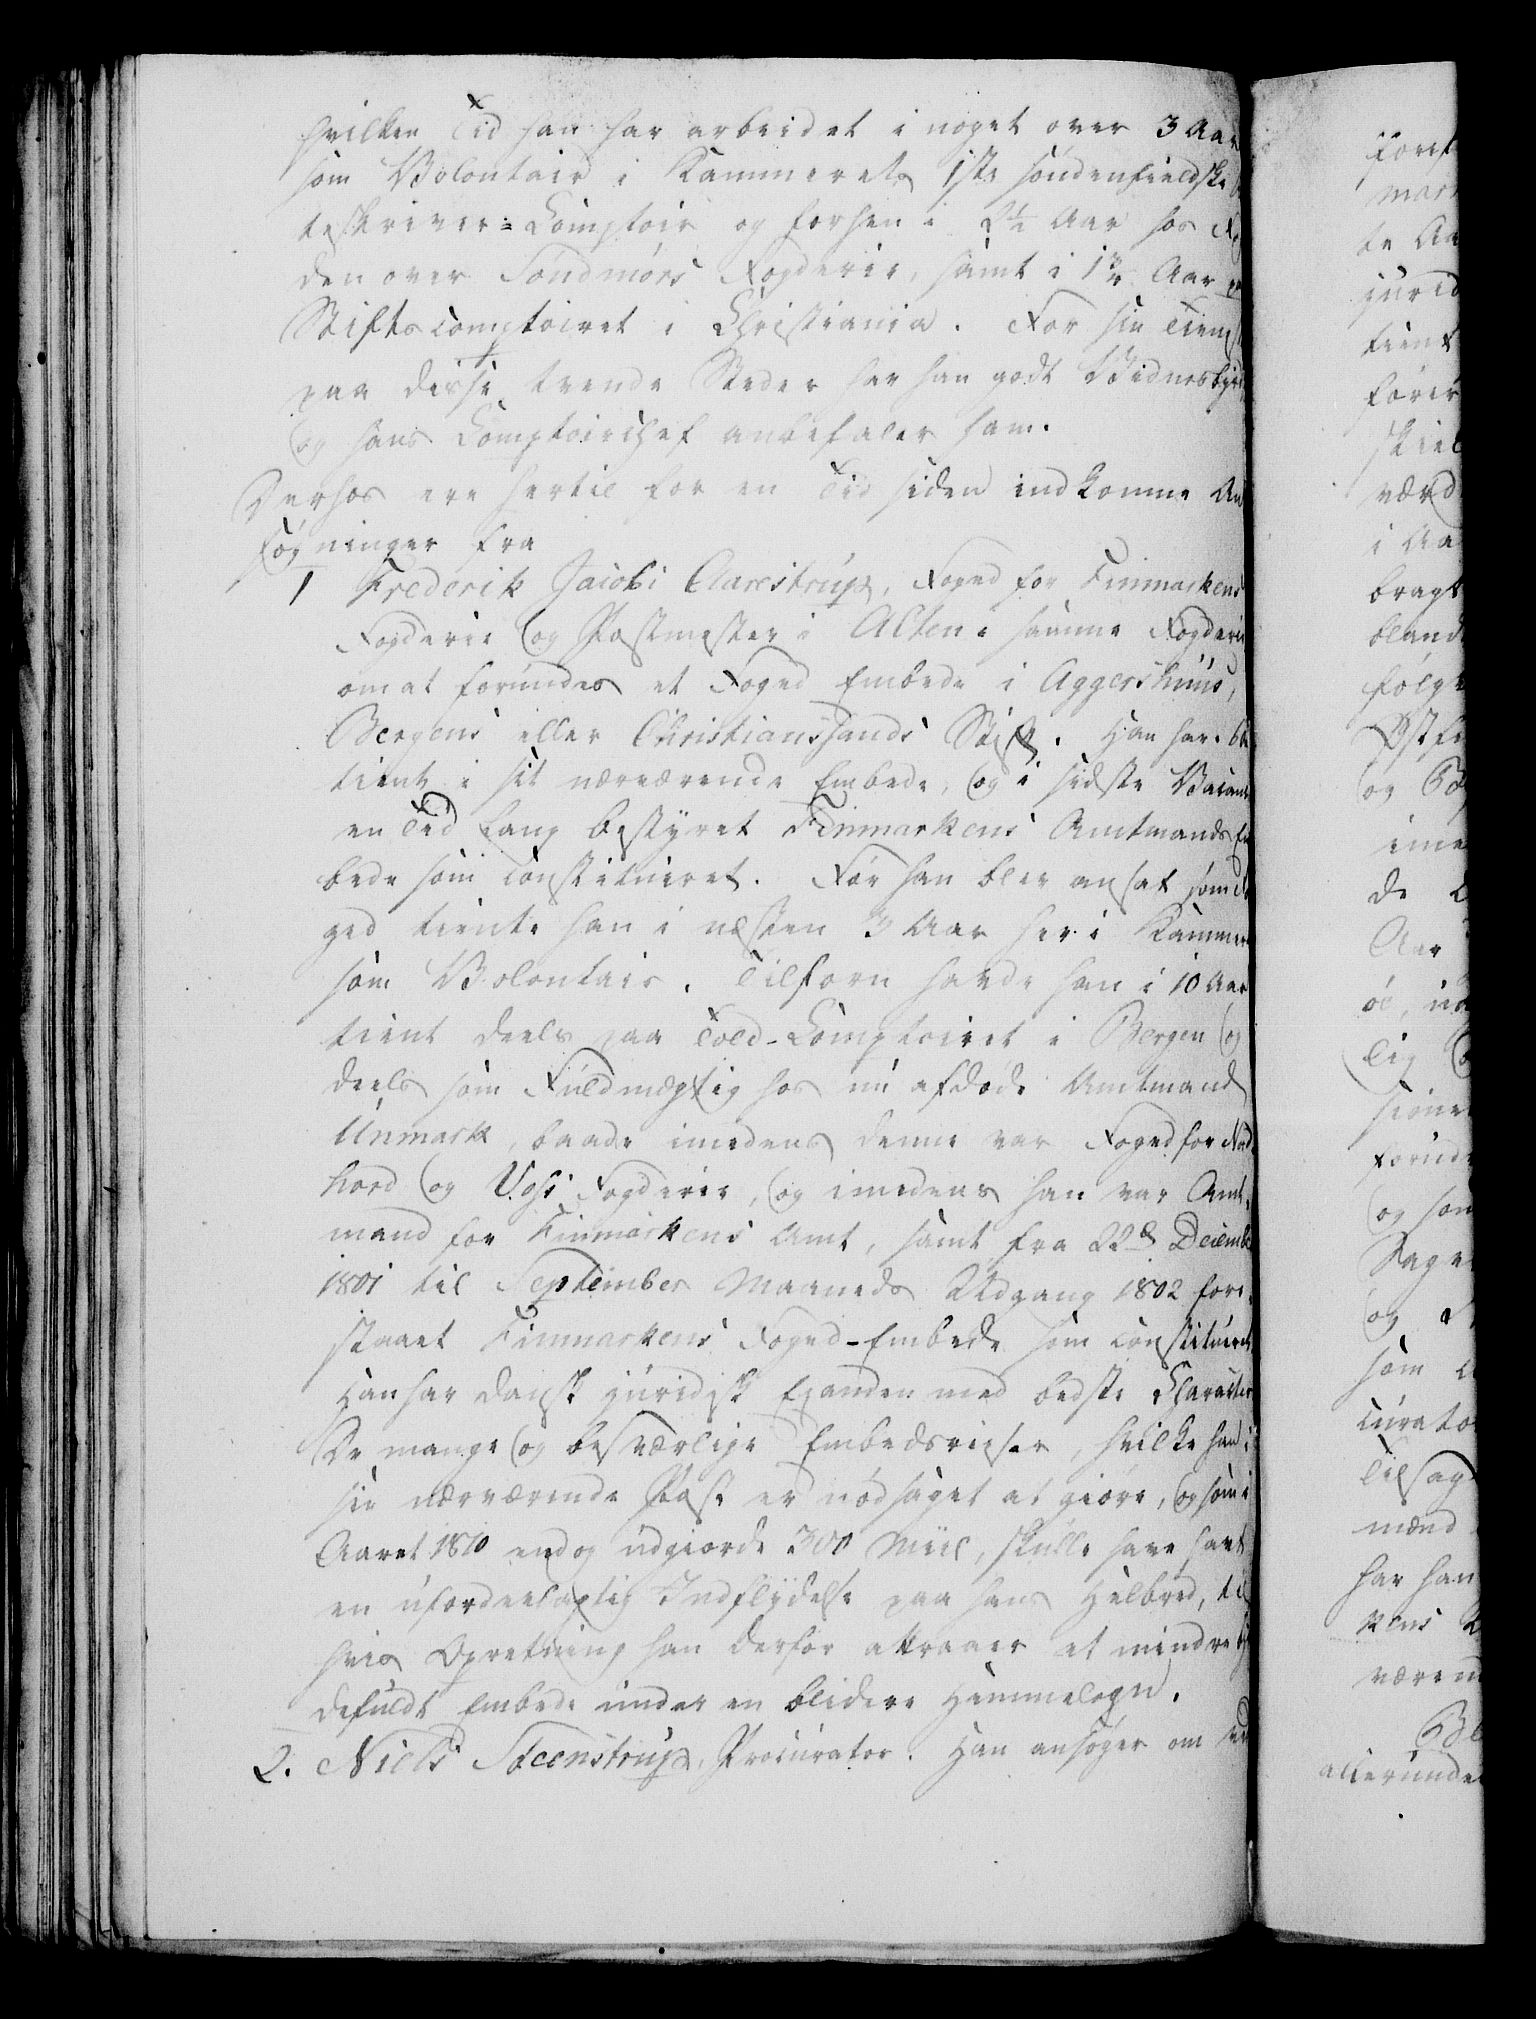 hvilken Tid han har arbeidet i noget over 3 Aar
som Volontair i Kammerets 1ste söndenfieldske
teskriver=Comptoir og forhen i 2½ Aar hos Fo
den over Söndmörs Fogderie, samt i 1¾ Aar paa
Stiftscomptoiret i Christiania. For sin Tienst
paa disse trende Steder har han godt Vidnesbyrd
og hans Comptoirchef anbefaler ham.
Derhos ere hertil for en Tid siden indkomne An
søgninger fra
1 Frederik Jacobi Aarestrup, Foged for Finmarkens
Fogderie og Postmester i Alten i samme Fogderie
om at forundes et Foged Embede i Aggershuus,
Bergens eller Christiansands Stift. Han har
tient i sit nærværende Embede, og i sidste Vacance
en Tid lang bestyret Finmarkens Amtmands Em
bede som constitueret. Før han blev ansat som Fo
ged tiente han i næsten 3 Aar her i Kammeret
som Volontair. Tilforn havde han i 10 Aar
tient deels paa Told-Comptoiret i Bergen og
deels som Fuldmægtig hos nu afdøde Amtmand
Unmack, baade imedens denne var Foged for Nord
hord og Voss Fogderie, og imedens han var Amt-
mand for Finmarkens Amt, samt fra 22de December
1801 til September Maaneds Udgang 1802 fore-
staaet Finmarkens Foged-Embede som constitueret
Han har dansk juridisk Examen med bedste Character
De mange og besværlige Embedsreiser, hvilke han i
sin nærværende Post er nødsaget at giøre, og som i
Aaret 1810 endog udgiorde 300 Miil, skulle have havt
en ufordeelagtig Indflydelse paa hans Helbred, til
hvis Opretning han derfor attraaer et mindre
defuldt Embede under en blidere Himmelegn.
2. Niels Steenstrup, Procurator. Han ansøger om